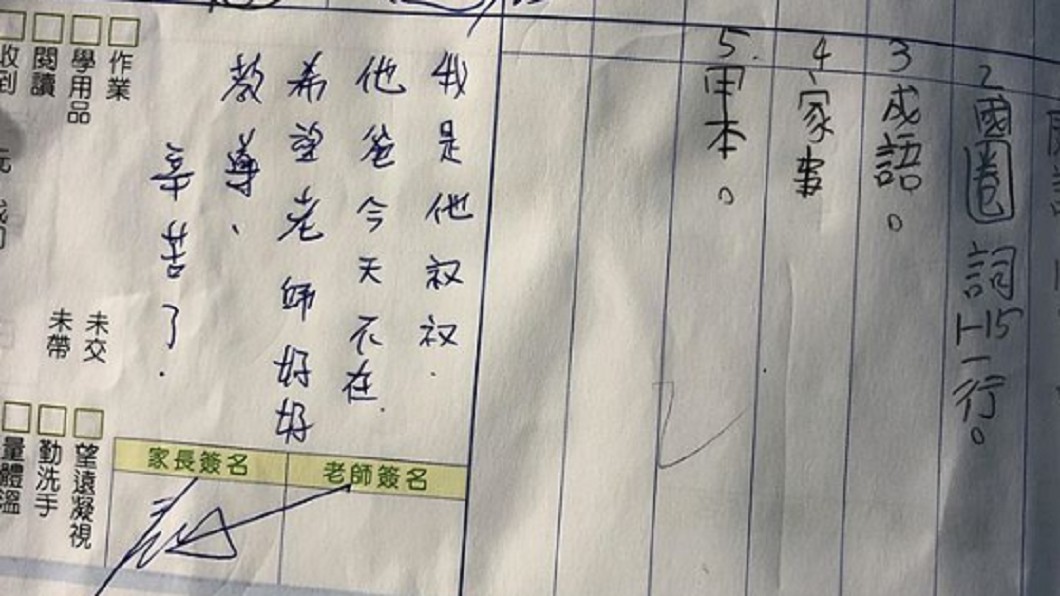 2國圈詞1-15一行。
3成語。
4、家事
5、甲本。
我是他叔叔.
他爸今天不在.
希望老師好好
教導、
辛苦了.
老師簽名
家長簽名
作業
學用品
閱讀
收到
未交
未帶
望遠凝視
勤洗手
量體溫